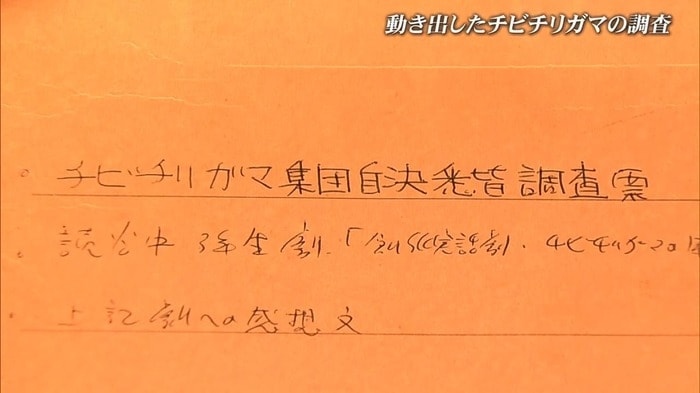 動き出したチビチリガマの調査
チビッチリガマ集団自決悉皆調査票
読谷中 3年生劇、「創作 話劇・チビチリガマの
上記劇への感想文